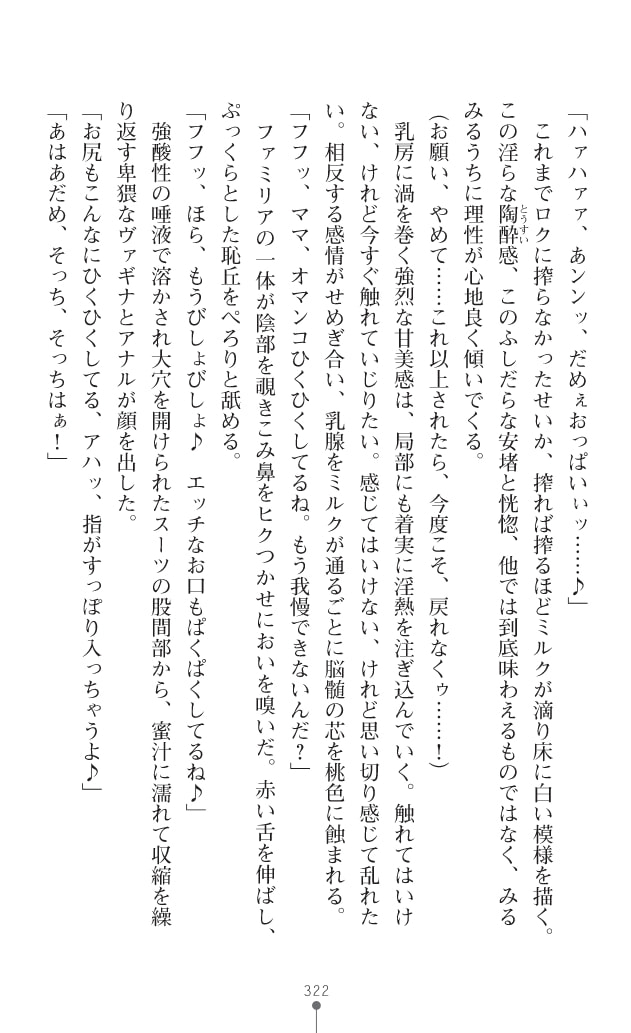 「ハァハァァ、あンンッ、だめぇおっぱいぃッ……♪」
　これまでロクに搾らなかったせいか、搾れば搾るほどミルクが滴り床に白い模様を描く。
この淫らな陶酔感、このふしだらな安堵と恍惚、他では到底味わえるものではなく、みる
とうすい
みるうちに理性が心地良く傾いでくる。
（お願い、やめて……これ以上されたら、今度こそ、戻れなくゥ……！）
　乳房に渦を巻く強烈な甘美感は、局部にも着実に淫熱を注ぎ込んでいく。触れてはいけ
ない、けれど今すぐ触れていじりたい。感じてはいけない、けれど思い切り感じて乱れた
い。相反する感情がせめぎ合い、乳腺をミルクが通るごとに脳髄の芯を桃色に蝕まれる。
「フフッ、ママ、オマンコひくひくしてるね。もう我慢できないんだ？」
　ファミリアの一体が陰部を覗きこみ鼻をヒクつかせにおいを嗅いだ。赤い舌を伸ばし、
ぷっくらとした恥丘をぺろりと舐める。
「フフッ、ほら、もうびしょびしょ♪　エッチなお口もぱくぱくしてるね♪」
　強酸性の唾液で溶かされ大穴を開けられたスーツの股間部から、蜜汁に濡れて収縮を繰
り返す卑猥なヴァギナとアナルが顔を出した。
「お尻もこんなにひくひくしてる、アハッ、指がすっぽり入っちゃうよ♪」
「あはあだめ、そっち、そっちはぁ！」
322